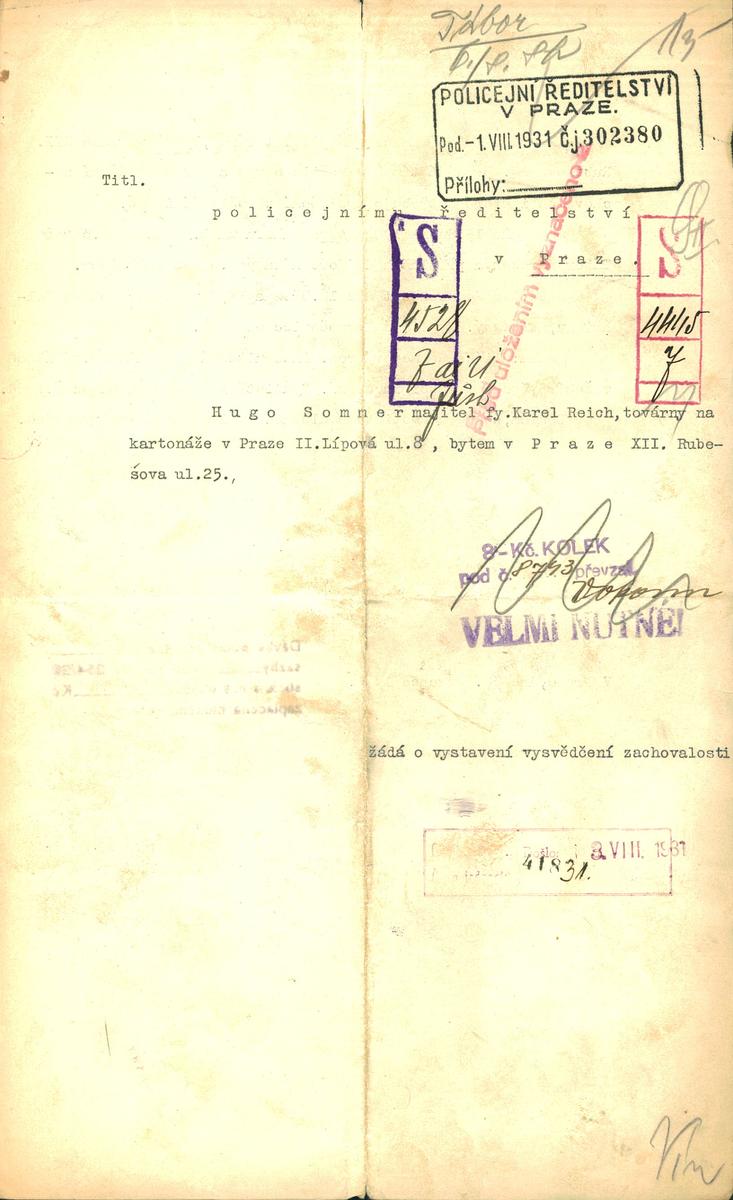 Tábor
15
POLICEJNÍ ŘEDITELSTVÍ
V PRAZE.
Pod.-1.VIII.1931 Č.j.302380
Přílohy:
Titl.
policejnímu ředitelství
v Praze.
S
4528
S
4415
7
Před uložením vyznačeno
Hugo Sommer majitel fy.Karel Reich,továrny na
kartonáže v Praze II.Lípová ul.8, bytem v Praze XII. Rube-
šova ul.25.,
8-Kč. KOLEK
pod č. 8793 převzal
VELMI NUTNÉ!
žádá o vystavení vysvědčení zachovalosti
Došlo 3.VIII.1931
41831.